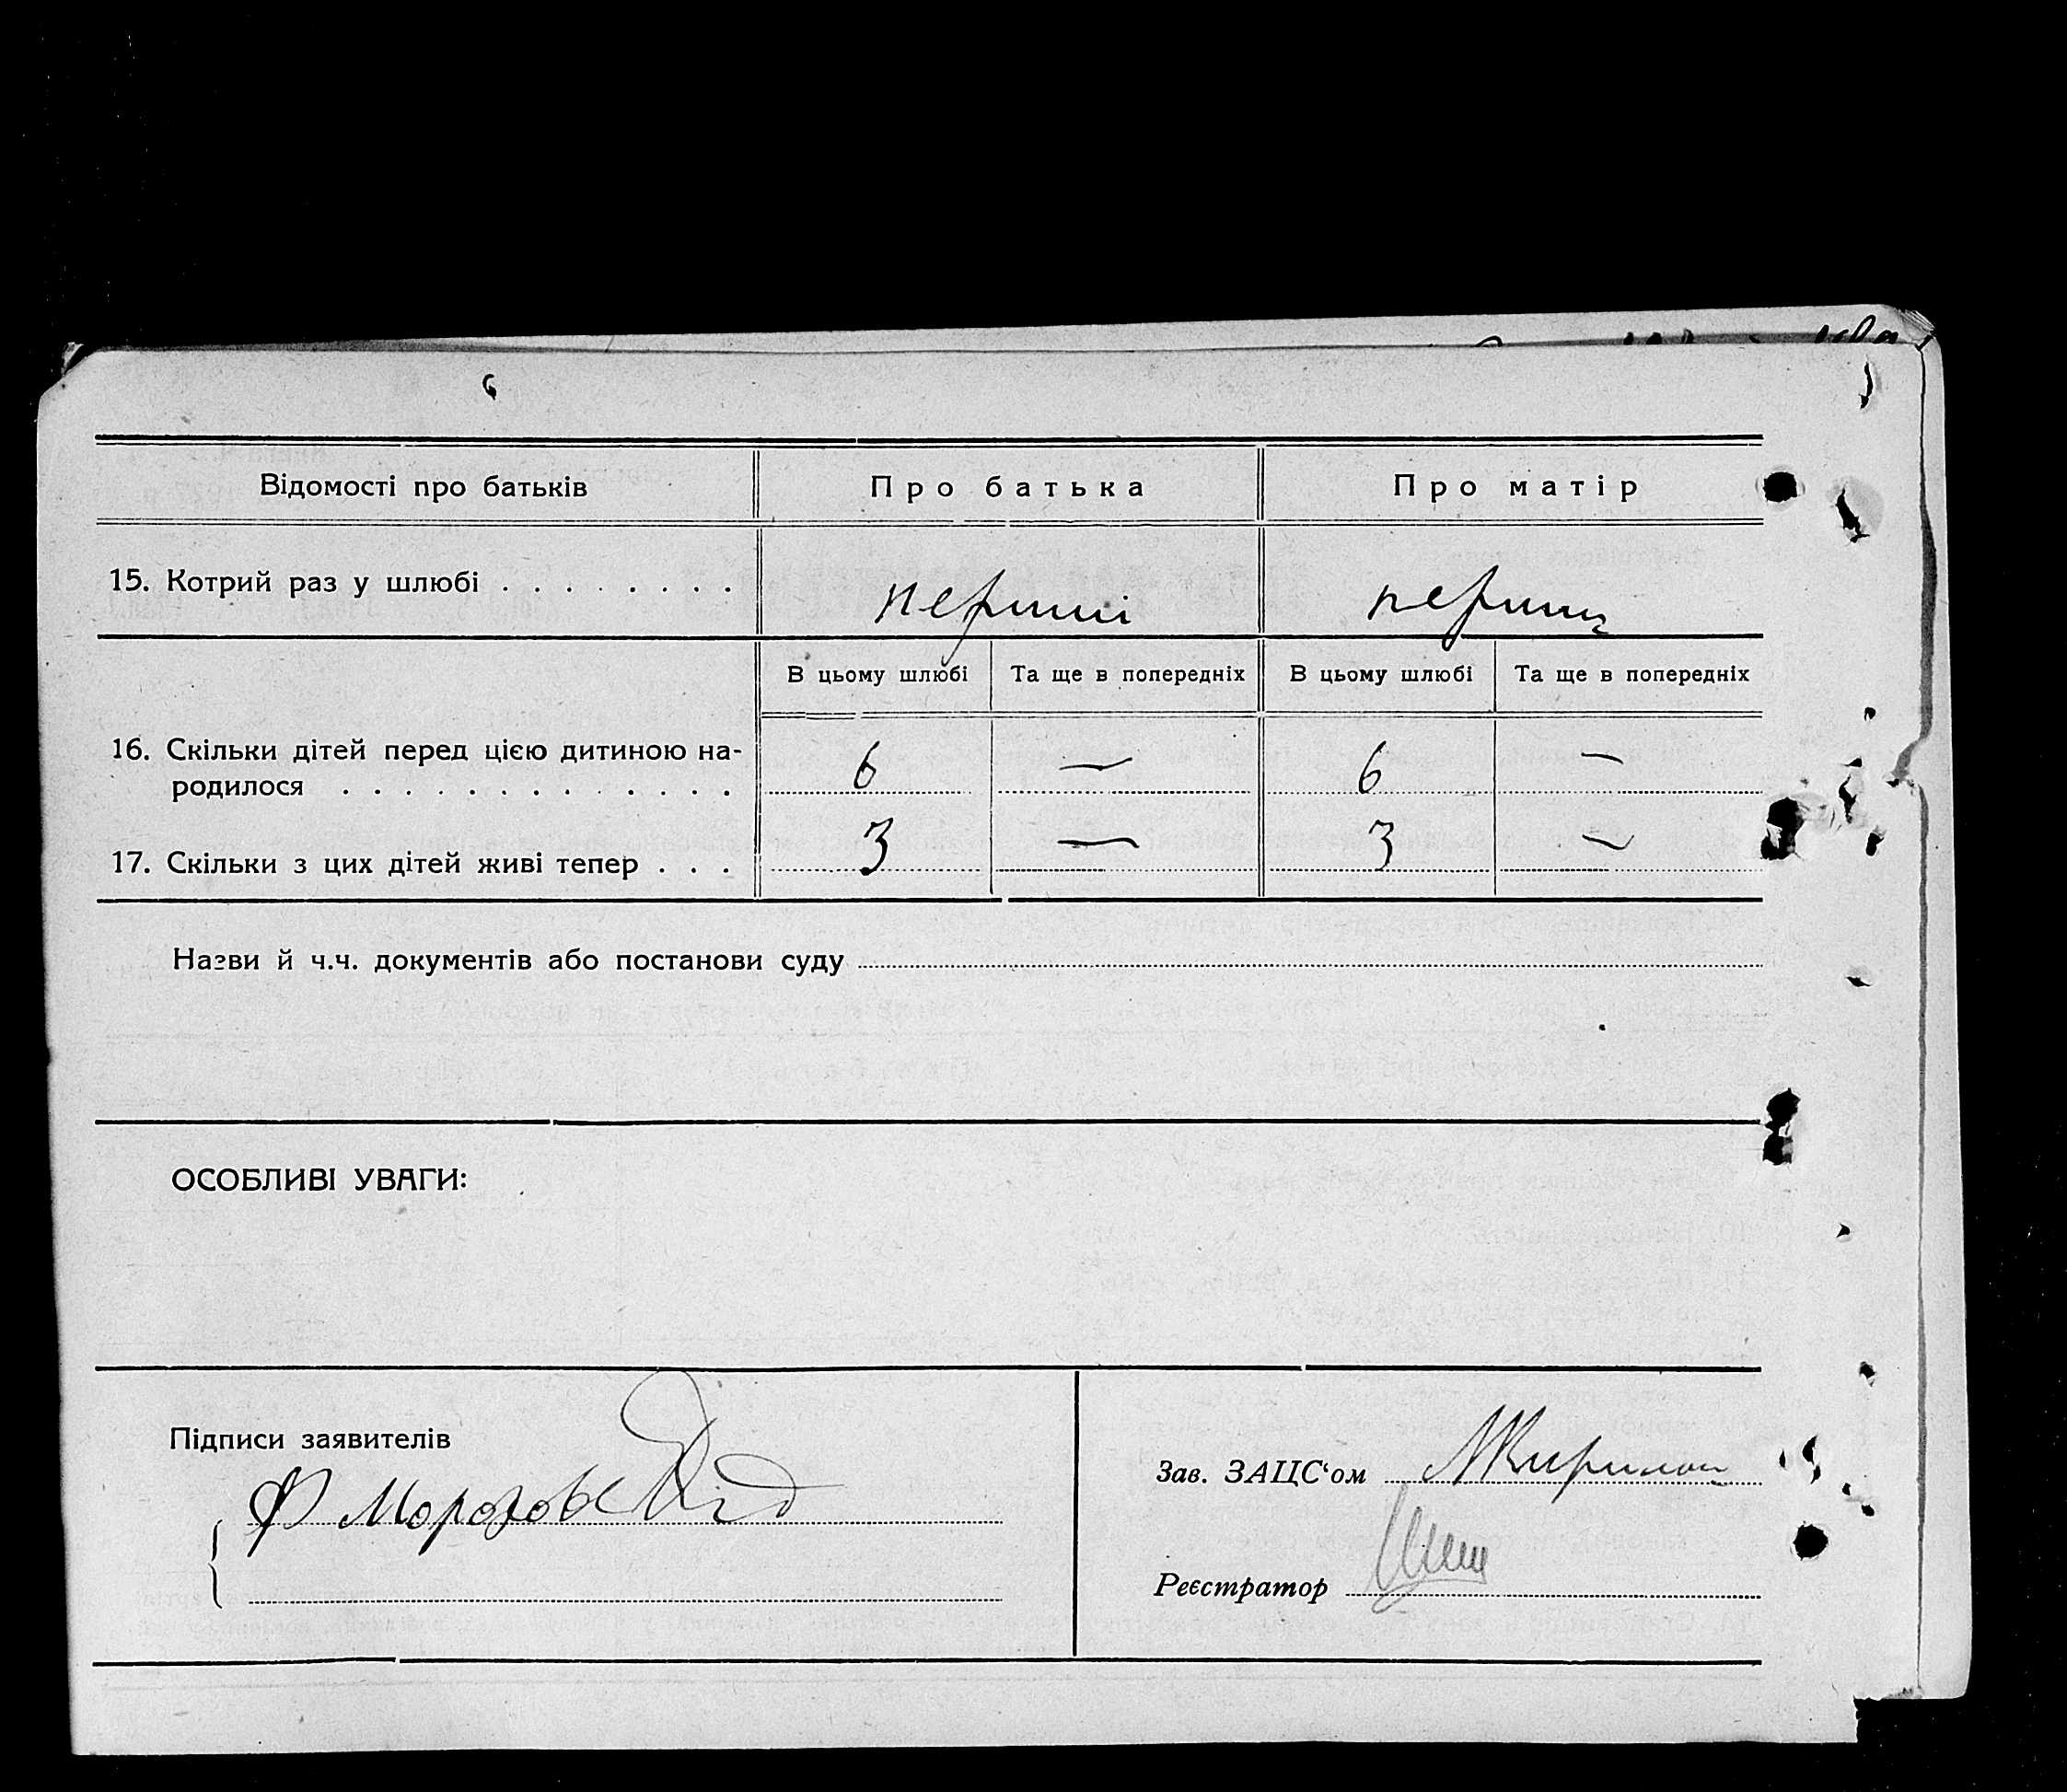 Відомості про батьків
Про батька
Про матір
15. Котрий раз у шлюбі . . . . . . . .
перший
перший
В цьому шлюбі
Та ще в попередніх
В цьому шлюбі
Та ще в попередніх
16. Скільки дітей перед цією дитиною на-
родилося . . . . . . . . . . . . . .
6 — 6 —
17. Скільки з цих дітей живі тепер . . .
3 — 3 —
Назви й ч.ч. документів або постанови суду
ОСОБЛИВІ УВАГИ:
Підписи заявителів
Ф
Зав. ЗАЦС‘ом
Реєстратор